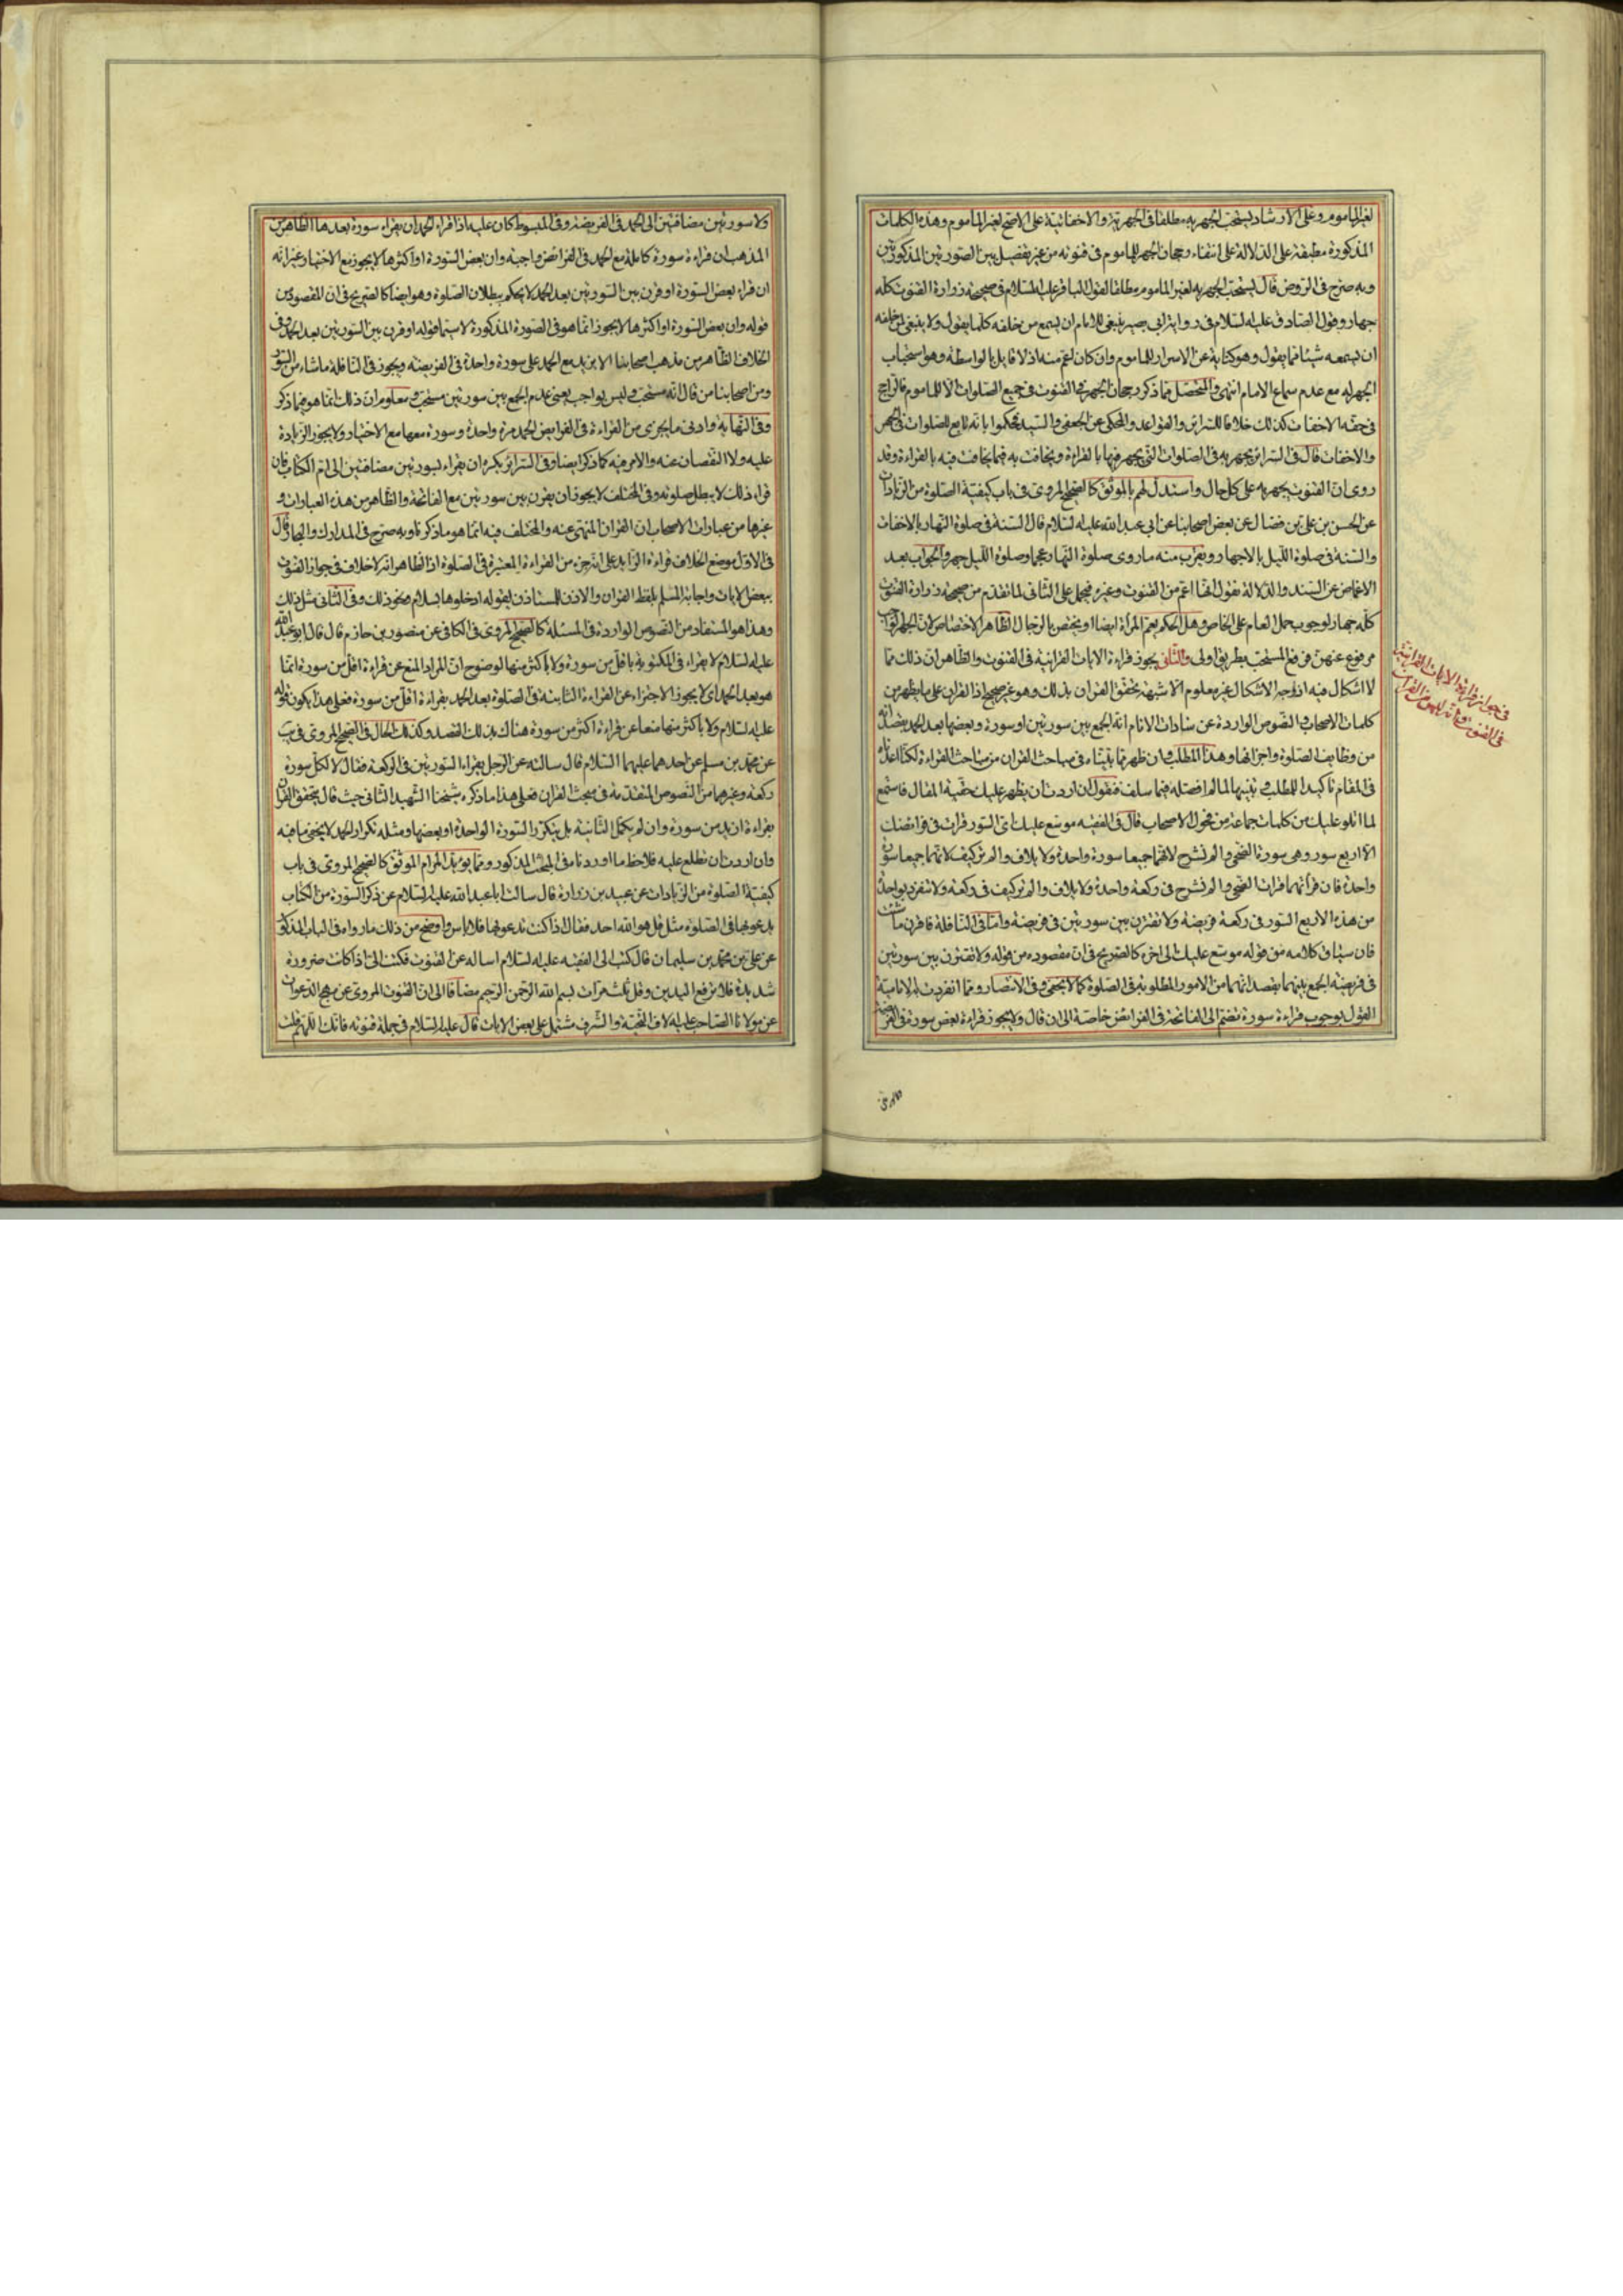 لغير المأموم وعلى الارشاد يستحب الجهر به مطلقا فى الجهرية والاخفاتية على الاصح لغير المأموم وهذه الكلمات
المذكورة مطبقة على الدلالة على انتفاء رجحان الجهر للماموم فى قنوته من غير تفصيل بين الصورتين المذكورتين
وبه صرح فى الروض قال يستحب الجهر به لغير الماموم مطلقا لقول الباقر عليه السلام فى صحيحة زرارة القنوت كله
جهار وقول الصادق عليه السلام فى رواية ابى بصير ينبغى للامام ان يسمع من خلفه كلما يقول ولا ينبغى لمن خلفه
ان يسمعه شيئا مما يقول وهو كناية عن الاسرار للماموم وان كان اعم منه اذ لا قايل بالواسطة وهو استحباب
الجهر له مع عدم سماع الامام انتهى والمتحصل مما ذكر رجحان الجهر فى القنوت فى جميع الصلوات الا للماموم فالراجح
فى حقه الاخفات كذلك خلافا للسرائر والقواعد والمحكى عن الجعفى والسيد فحكموا بانه تابع للصلوات فى الجهر
والاخفات قال فى السرائر يجهر به فى الصلوات التى يجهر فيها بالقراءة ويخافت به فيما يخافت فيه بالقراءة وقد
روى ان القنوت يجهر به على كل حال واستدل لهم بالموثق كالصحيح المروى فى باب كيفية الصلوة من الزيادات
عن الحسن بن على بن فضال عن بعض اصحابنا عن ابى عبد الله عليه السلام قال السنة فى صلوة النهار بالاخفات
والسنة فى صلوة الليل بالاجهار ويقرب منه ما روى صلوة النهار عجما وصلوة الليل جهر والجواب بعد
الاغماض عن السند والدلالة نقول انها اعم من القنوت وغيره فيحمل على الثانى لما تقدم من صحيحة زرارة القنوت
كله جهار لوجوب حمل العام على الخاص وهل الحكم يعم المرأة ايضا او يختص بالرجال الظاهر الاختصاص لان الجهر الواجب
مرفوع عنهن فرفع المستحب بطريق اولى والثانى يجوز قراءة الايات القرانية فى القنوت والظاهر ان ذلك مما
لا اشكال فيه اذ وجه الاشكال غير معلوم الا شبهة تحقق القران بذلك وهو غير صحيح اذ القران على ما يظهر من
كلمات الاصحاب والنصوص الواردة عن سادات الانام انه الجمع بين سورتين او سورة وبعضها بعد الحمد بقصد انه
من وظايف الصلوة واجزائها وهذا المطلب وان ظهر مما بيناه فى مباحث القران من مباحث القراءة لكنا اعدناه
فى المقام تاكيدا للمطلب وتنبيها لما لم افصله فيما سلف فنقول ان اردت ان يظهر عليك حقية المقال فاستمع
لما اتلو عليك من كلمات جماعة من فحول الاصحاب قال فى الفقيه موسع عليك اى السور قرات فى فرائضك
الا اربع سور وهى سورة الضحى والم نشرح لانهما جميعا سورة واحدة ولايلاف والم تر كيف لانهما جميعا سورة
واحدة فان قرأتهما قرات الضحى والم نشرح فى ركعة واحدة ولايلاف والم تر كيف فى ركعة ولا تنفرد بواحدة
من هذه الاربع السور فى ركعة فريضة ولا تقرن بين سورتين فى فريضة واما فى النافلة فاقرن ما شئت
فان سياق كلامه من قوله موسع عليك الى اخره كالصريح فى ان مقصوده من قوله ولا تقرن بين سورتين
فى فريضة الجمع بينهما بقصد انهما من الامور المطلوبة فى الصلوة كما لا يخفى وفى الانتصار ومما انفردت به الامامية
القول بوجوب قراءة سورة تضم الى الفاتحة فى الفرائض خاصة الى ان قال ولا يجوز قراءة بعض سورة فى الفريضة
فى جواز قراءة الايات القرانية
فى القنوت وانه ليس من القران
ولا سورتين مضافتين الى الحمد فى الفريضة وفى المبسوط كان عليه اذا قراء الحمد ان يقراء سورة بعدها الظاهر من
المذهب ان قراءة سورة كاملة مع الحمد فى الفرائض واجبة وان بعض السورة او اكثرها لا يجوز مع الاختيار غير انه
ان قراء بعض السورة او قرن بين السورتين بعد الحمد لا يحكم ببطلان الصلوة وهو ايضا كالصريح فى ان المقصود من
قوله وان بعض السورة او اكثرها لا يجوز انما هو فى الصورة المذكورة لا سيما قوله او قرن بين السورتين بعد الحمد وفى
الخلاف الظاهر من مذهب اصحابنا الا يزيد مع الحمد على سورة واحدة فى الفريضة ويجوز فى النافلة ما شاء من السور
ومن اصحابنا من قال انه مستحب وليس بواجب يعنى عدم الجمع بين سورتين مستحب ومعلوم ان ذلك انما هو فيما ذكر
وفى النهاية وادنى ما يجزى من القراءة فى الفرايض الحمد مرة واحدة وسورة معها مع الاختيار ولا يجوز الزيادة
عليه ولا النقصان عنه والامر فيه كما ذكر ايضا وفى السرائر يكره ان يقراء لسورتين مضافتين الى ام الكتاب فان
قراء ذلك لا يبطل صلوته وفى المختلف لا يجوز ان يقرن بين سورتين مع الفاتحة والظاهر من هذه العبارات و
غيرها من عبارات الاصحاب ان القران المنهى عنه والمختلف فيه انما هو ما ذكرناه وبه صرح فى المدارك والبحار قال
فى الاول موضع الخلاف قراءة الزايد على انه جزء من القراءة المعتبرة فى الصلوة اذ الظاهر انه لا خلاف فى جواز القنوت
ببعض الايات واجابة المسلم بلفظ القران والاذن للمستاذن بقوله ادخلوها بسلام ونحو ذلك وفى الثانى مثل ذلك
وهذا هو المستفاد من النصوص الواردة فى المسئلة كالصحيح المروى فى الكافى عن منصور بن حازم قال قال ابو عبد الله
عليه السلام لا يقراء فى المكتوبة باقل من سورة ولا باكثر منها لوضوح ان المراد المنع عن قراءة اقل من سورة انما
هو بعد الحمد اى لا يجوز الاجتزاء عن القراءة الثابتة فى الصلوة بعد الحمد بقراءة اقل من سورة فعلى هذا يكون قوله
عليه السلام ولا باكثر منها منعا عن قراءة اكثر من سورة هناك بذلك القصد وكذلك الحال فى الصحيح المروى فى يب
عن محمد بن مسلم عن احدهما عليهما السلام قال سالته عن الرجل يقراء السورتين فى الركعة فقال لا لكل سورة
ركعة وغيرهما من النصوص المتقدمة فى مبحث القران فعلى هذا ما ذكره شيخنا الشهيد الثانى حيث قال يتحقق القران
بقراءة ازيد من سورة وان لم يكمل الثانية بل بتكرر السورة الواحدة او بعضها ومثله تكرار الحمد لا يخفى ما فيه
وان اردت ان تطلع عليه فلاحظ ما اوردنا فى المبحث المذكور ومما يؤيد المرام الموثق كالصحيح المروى فى باب
كيفية الصلوة من الزيادات عن عبيد بن زرارة قال سالت ابا عبد الله عليه السلام عن ذكر السورة من الكتاب
يدعو بها فى الصلوة مثل قل هو الله احد فقال اذا كنت تدعو بها فلا باس واوضح من ذلك ما رواه فى الباب المذكور
عن على بن محمد بن سليمان قال كتبت الى الفقيه عليه السلام اساله عن القنوت فكتب الى اذا كانت ضرورة
شديدة فلا ترفع اليدين وقل ثلث مرات بسم الله الرحمن الرحيم مضافا الى ان القنوت المروى عن مهج الدعوات
عن مولانا الصاحب عليه الاف التحية والشرف مشتمل على بعض الايات قال عليه السلام فى جملة قنوته فانك اللهم قلت